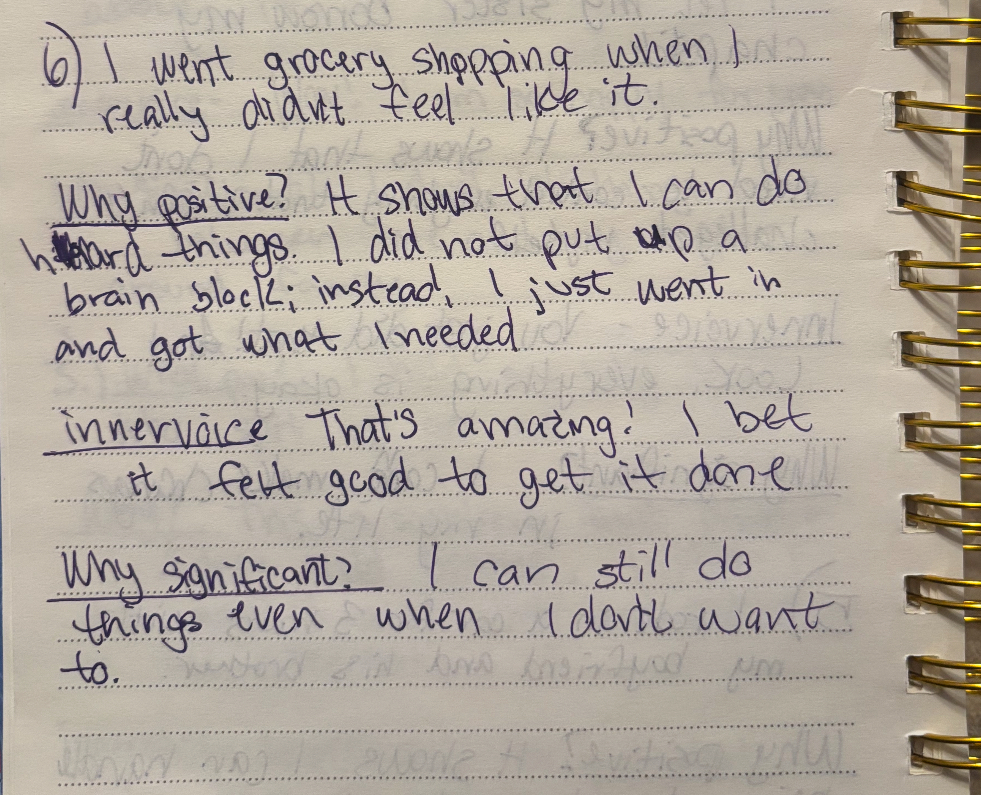 6) I went grocery shopping when I
really didn't feel like it.
Why positive? It shows that I can do
hard things. I did not put up a
brain block; instead, I just went in
and got what I needed
innervoice That's amazing! I bet
it felt good to get it done
Why significant? I can still do
things even when I don't want
to.